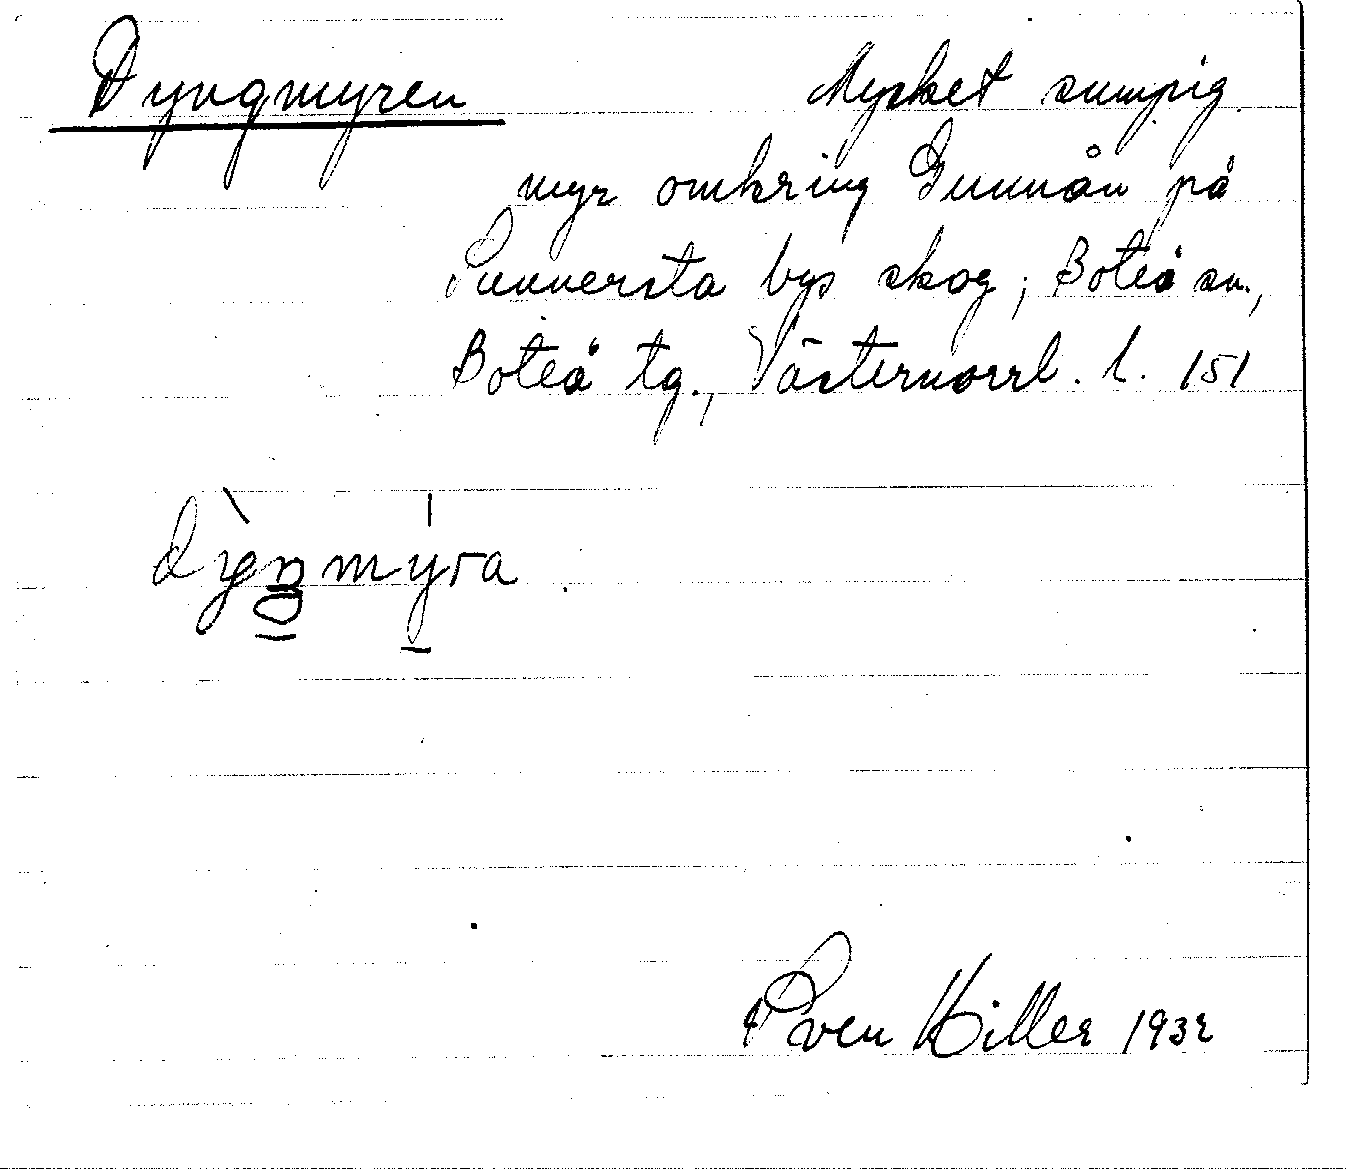 Dyngmyren Mycket sumpig
myr omkring Gunnån på
Sunnersta bys skog, Boteå sn.,
Boteå tg., Västernorrl. l. 151
dyŋmyra
Sven Hiller 1932